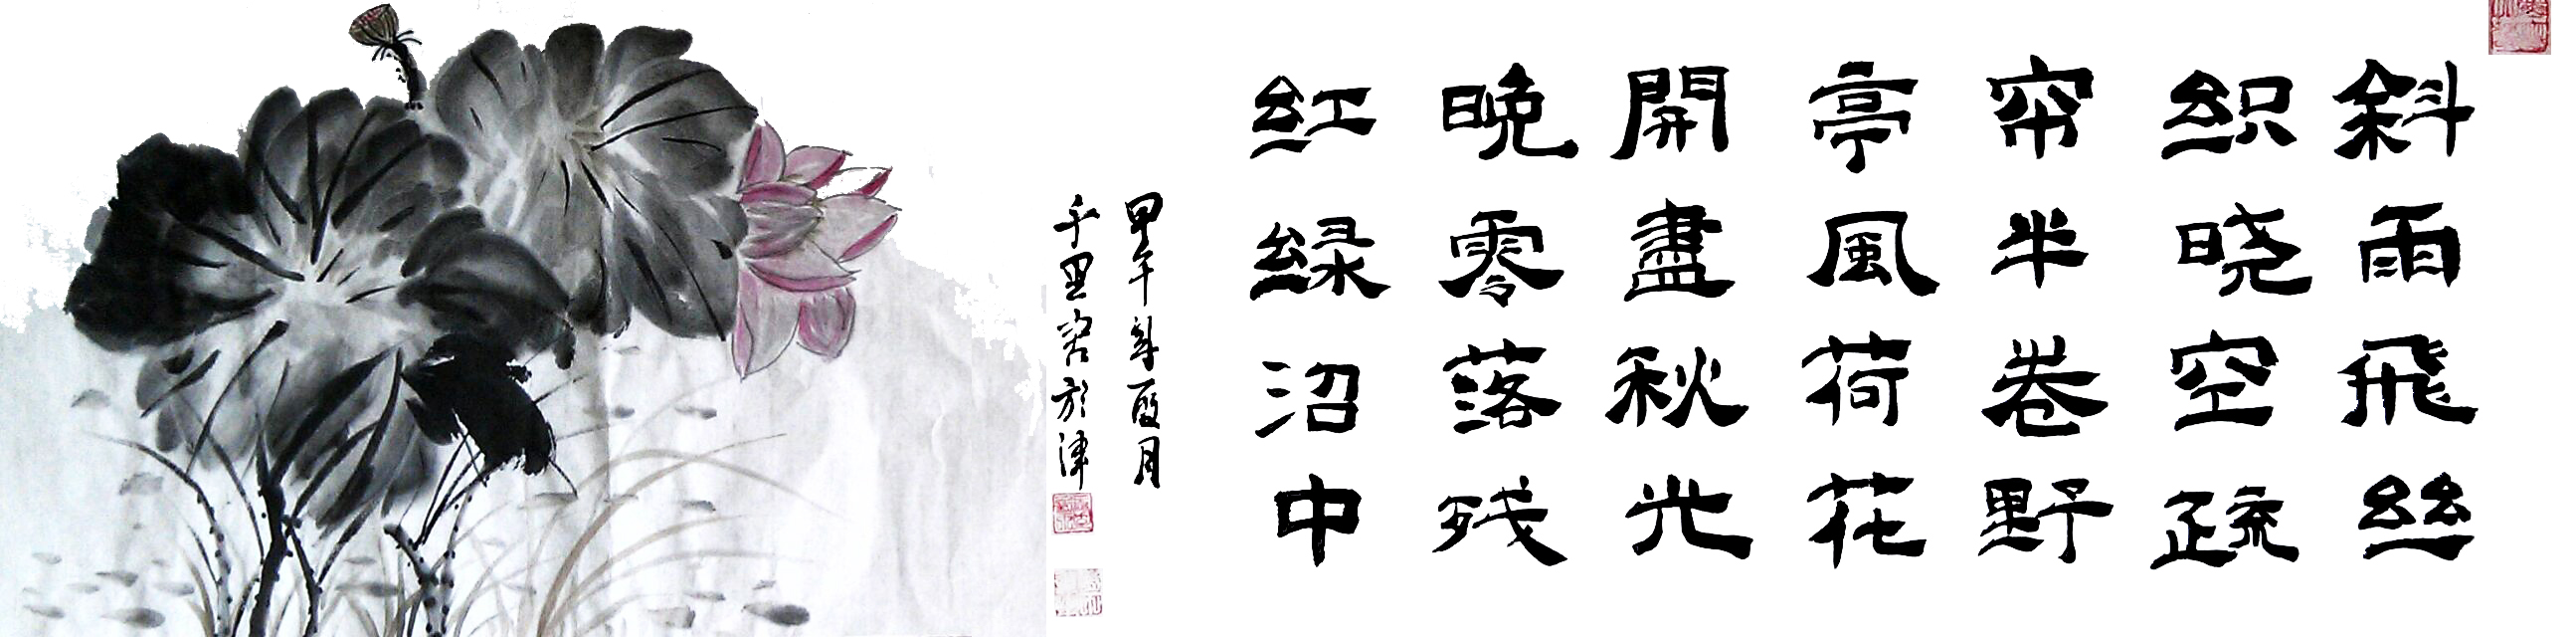 斜雨飛絲
织晓空疏
帘半卷野
亭風荷花
開盡秋光
晚零落残
红緑沼中
甲午年酉月
千里客於津